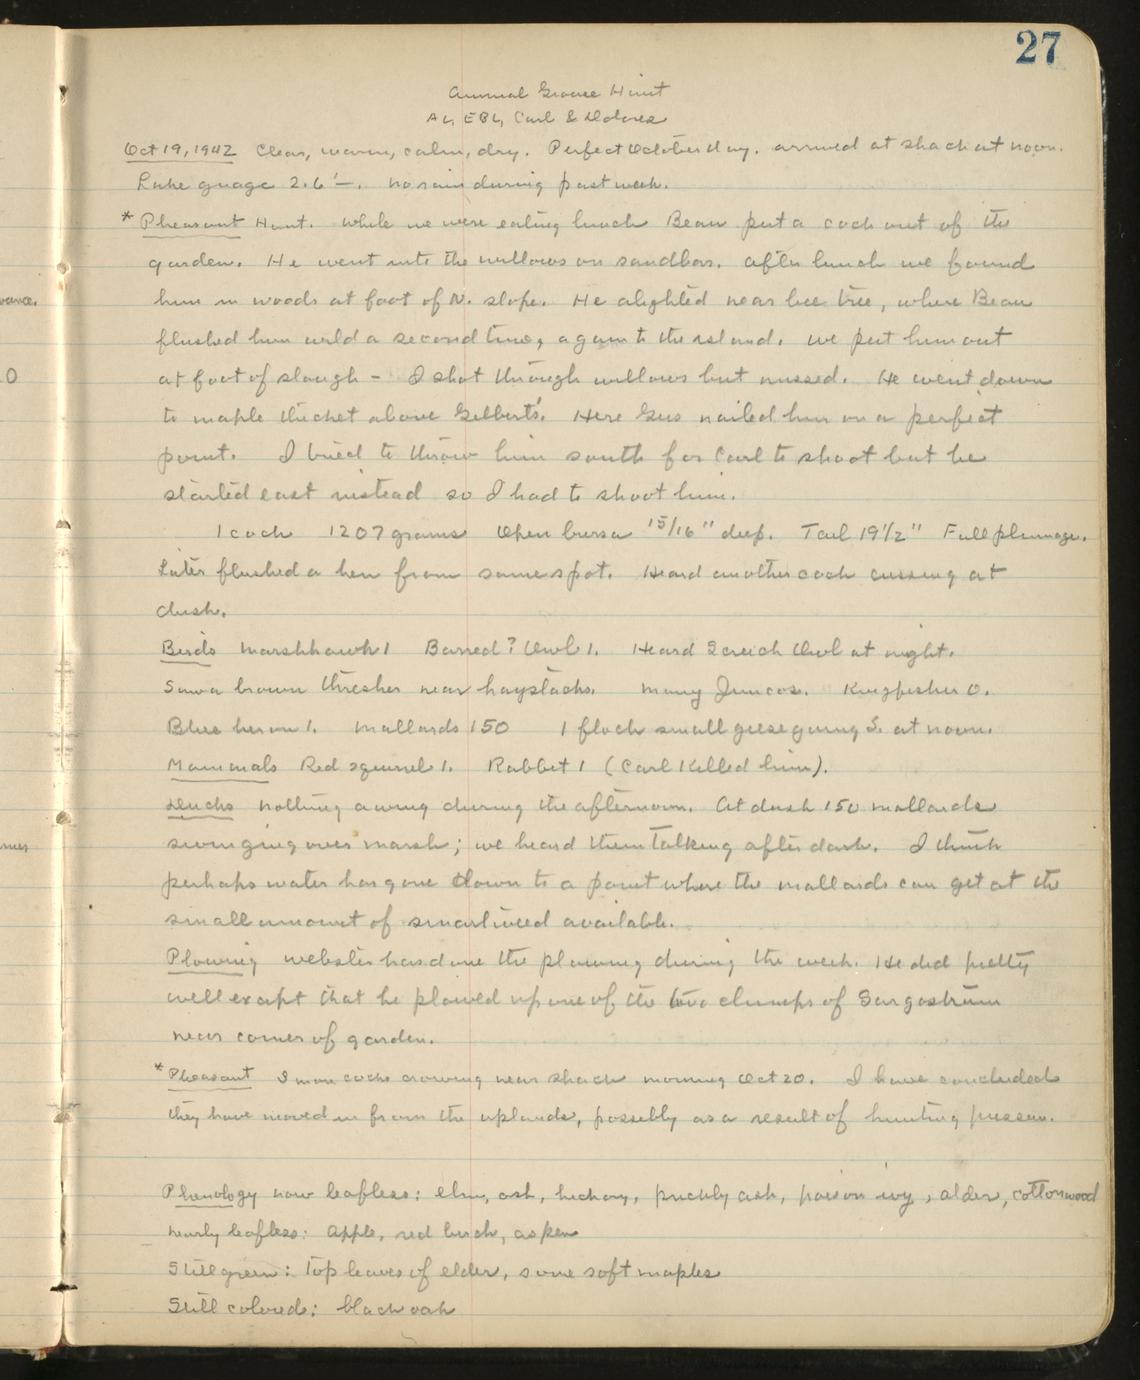 27
Annual Grouse Hunt
AL, EBL, Carl & Dolores
Oct 19, 1942 Clear, warm, calm, dry. Perfect October day. arrived at shack at noon.
Lake guage 2.6'—. no rain during past week.
* Pheasant Hunt. while we were eating lunch Beau put a cock out of the
garden. He went into the willows on sandbar. after lunch we found
him in woods at foot of N. slope. He alighted near bee tree, where Beau
flushed him wild a second time, again to the island. we put him out
at foot of slough - I shot through willows but missed. He went down
to maple thicket above Gilbert's. Here Gus nailed him on a perfect
point. I tried to throw him south for Carl to shoot but he
started east instead so I had to shoot him.
1 cock 1207 grams Open bursa 15/16" deep. Tail 19 1/2" Full plumage.
Later flushed a hen from same spot. Heard another cock cussing at
dusk.
Birds marshhawk 1 Barred? Owl 1. Heard Screech Owl at night.
Saw a brown thresher near haystacks. many Juncos. Kingfisher 0.
Blue heron 1. Mallards 150 1 flock small geese going S. at noon.
Mammals Red squirrel 1. Rabbit 1 (Carl killed him).
Ducks nothing awing during the afternoon. At dusk 150 mallards
swinging over marsh; we heard them talking after dark. I think
perhaps water has gone down to a point where the mallards can get at the
small amount of smartweed available.
Plowing Webster has done the plowing during the week. He did pretty
well except that he plowed up one of the two clumps of Sorgastrum
near corner of garden.
* Pheasant cocks crowing near shack morning Oct 20. I have concluded
they have moved in from the uplands, possibly as a result of hunting pressure.
Phenology now leafless: elm, ash, hickory, prickly ash, poison ivy, alder, cottonwood
nearly leafless: Apple, red birch, aspen
Still green: Top leaves of elder, some soft maples
Still colored: black oak
vance.
0